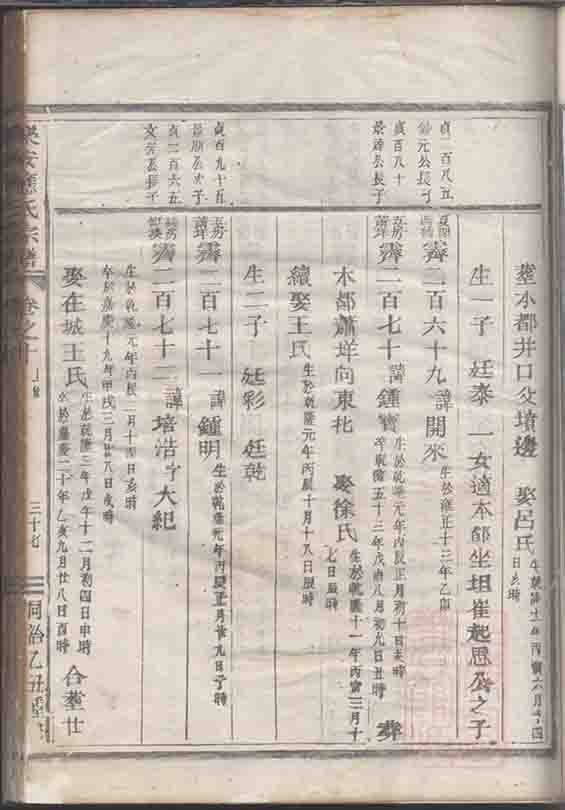 葬本都井口父墳邊　娶呂氏
生乾隆十一年丙寅六月十四
日亥時
生一子　廷泰　一女適本都坐坦崔起思公之子
貞二百八五
元公長子
霽二百六十九諱開來
生於雍正十三年乙卯
貞百八十
公長子
五房
蕭垟
霽二百七十諱鍾寶
生於乾隆元年丙辰正月初十日亥時
卒乾隆五十三年戊申八月初九日丑時
葬
本都蕭垟向東北　娶徐氏
生於乾隆十一年丙寅三月十
七日辰時
續娶王氏
生於乾隆元年丙辰十月十八日辰時
生二子　廷彩　廷乾
貞百九十五
公次子
五房
蕭垟
霽二百七十一諱鍾明
生於乾隆元年丙辰正月廿九日子時
貞一百六五
文芳公長子
霽二百七十二諱培浩字大紀
生於乾隆元年丙辰二月十四日亥時
卒於嘉慶十九年甲戌三月廿八日戌時
娶在城王氏
生於乾隆三年戊午十二月初四日申時
卒於嘉慶二十年乙亥九月廿八日酉時
合葬廿
樂安蔣氏宗譜
卷之十
三十七
同治乙丑